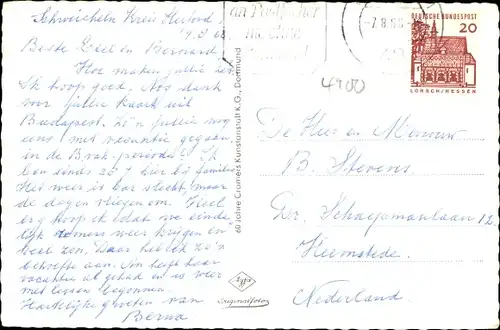 Schweicheln Kreis Herford
Beste Riel en Bernard
Hoe maken jullie het
Ik hoop goed. Nog dank
voor jullie kaart uit
Budapest. Zijn jullie nog
eens met vacantie gegaan
in de Bvak. periode? Ik
ben sinds 20/7 hier bij familie
Het weer is bar slecht, maar
de dagen vliegen om. Heel
erg hoop ik dat we einde
lijk zomers weer krijgen en
veel zon. Daar heb ik zo'n
behoefte aan. Ton heeft haar
vacantie al gehad en is weer
met lessen begonnen.
Hartelijke groeten van
Berna
60 Jahre Cramers Kunstanstalt K.G., Dortmund
Agfa
Originalfoto
an Postfächer
-7.8.65
DEUTSCHE BUNDESPOST
20
LORSCH/HESSEN
4900
De Heer en Mevrouw
B. Stevens
Dr. Schaepmanlaan 12
Heemstede.
Nederland